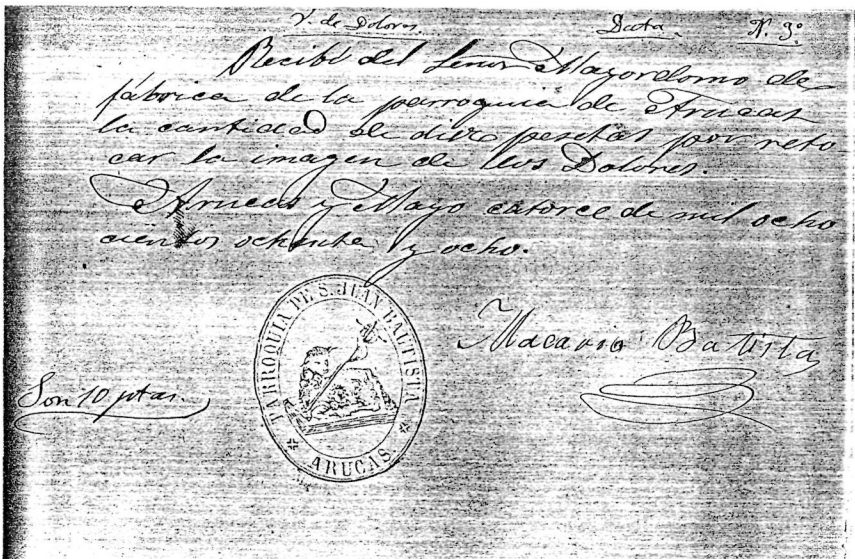 V. de Dolores. Data N. 9º
Recibí del Señor Mayordomo de
fábrica de la parroquia de Arucas
la cantidad de diez pesetas por reto
car la imagen de los Dolores.
Arucas y Mayo catorce de mil ocho
cientos ochenta y ocho.
Macario Batista
Son 10 ptas.
PARROQUIA DE S. JUAN BAUTISTA
ARUCAS.